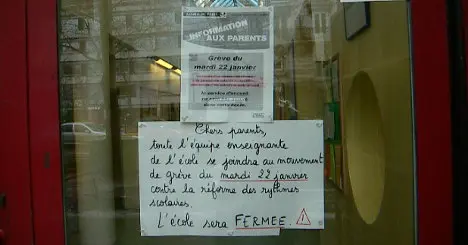 INFORMATION
AUX PARENTS
Grève du
mardi 22 janvier
Chers parents,
toute l'équipe enseignante
de l'école se joindra au mouvement
de grève du mardi 22 janvier
contre la réforme des rythmes
scolaires.
L'école sera FERMEE.